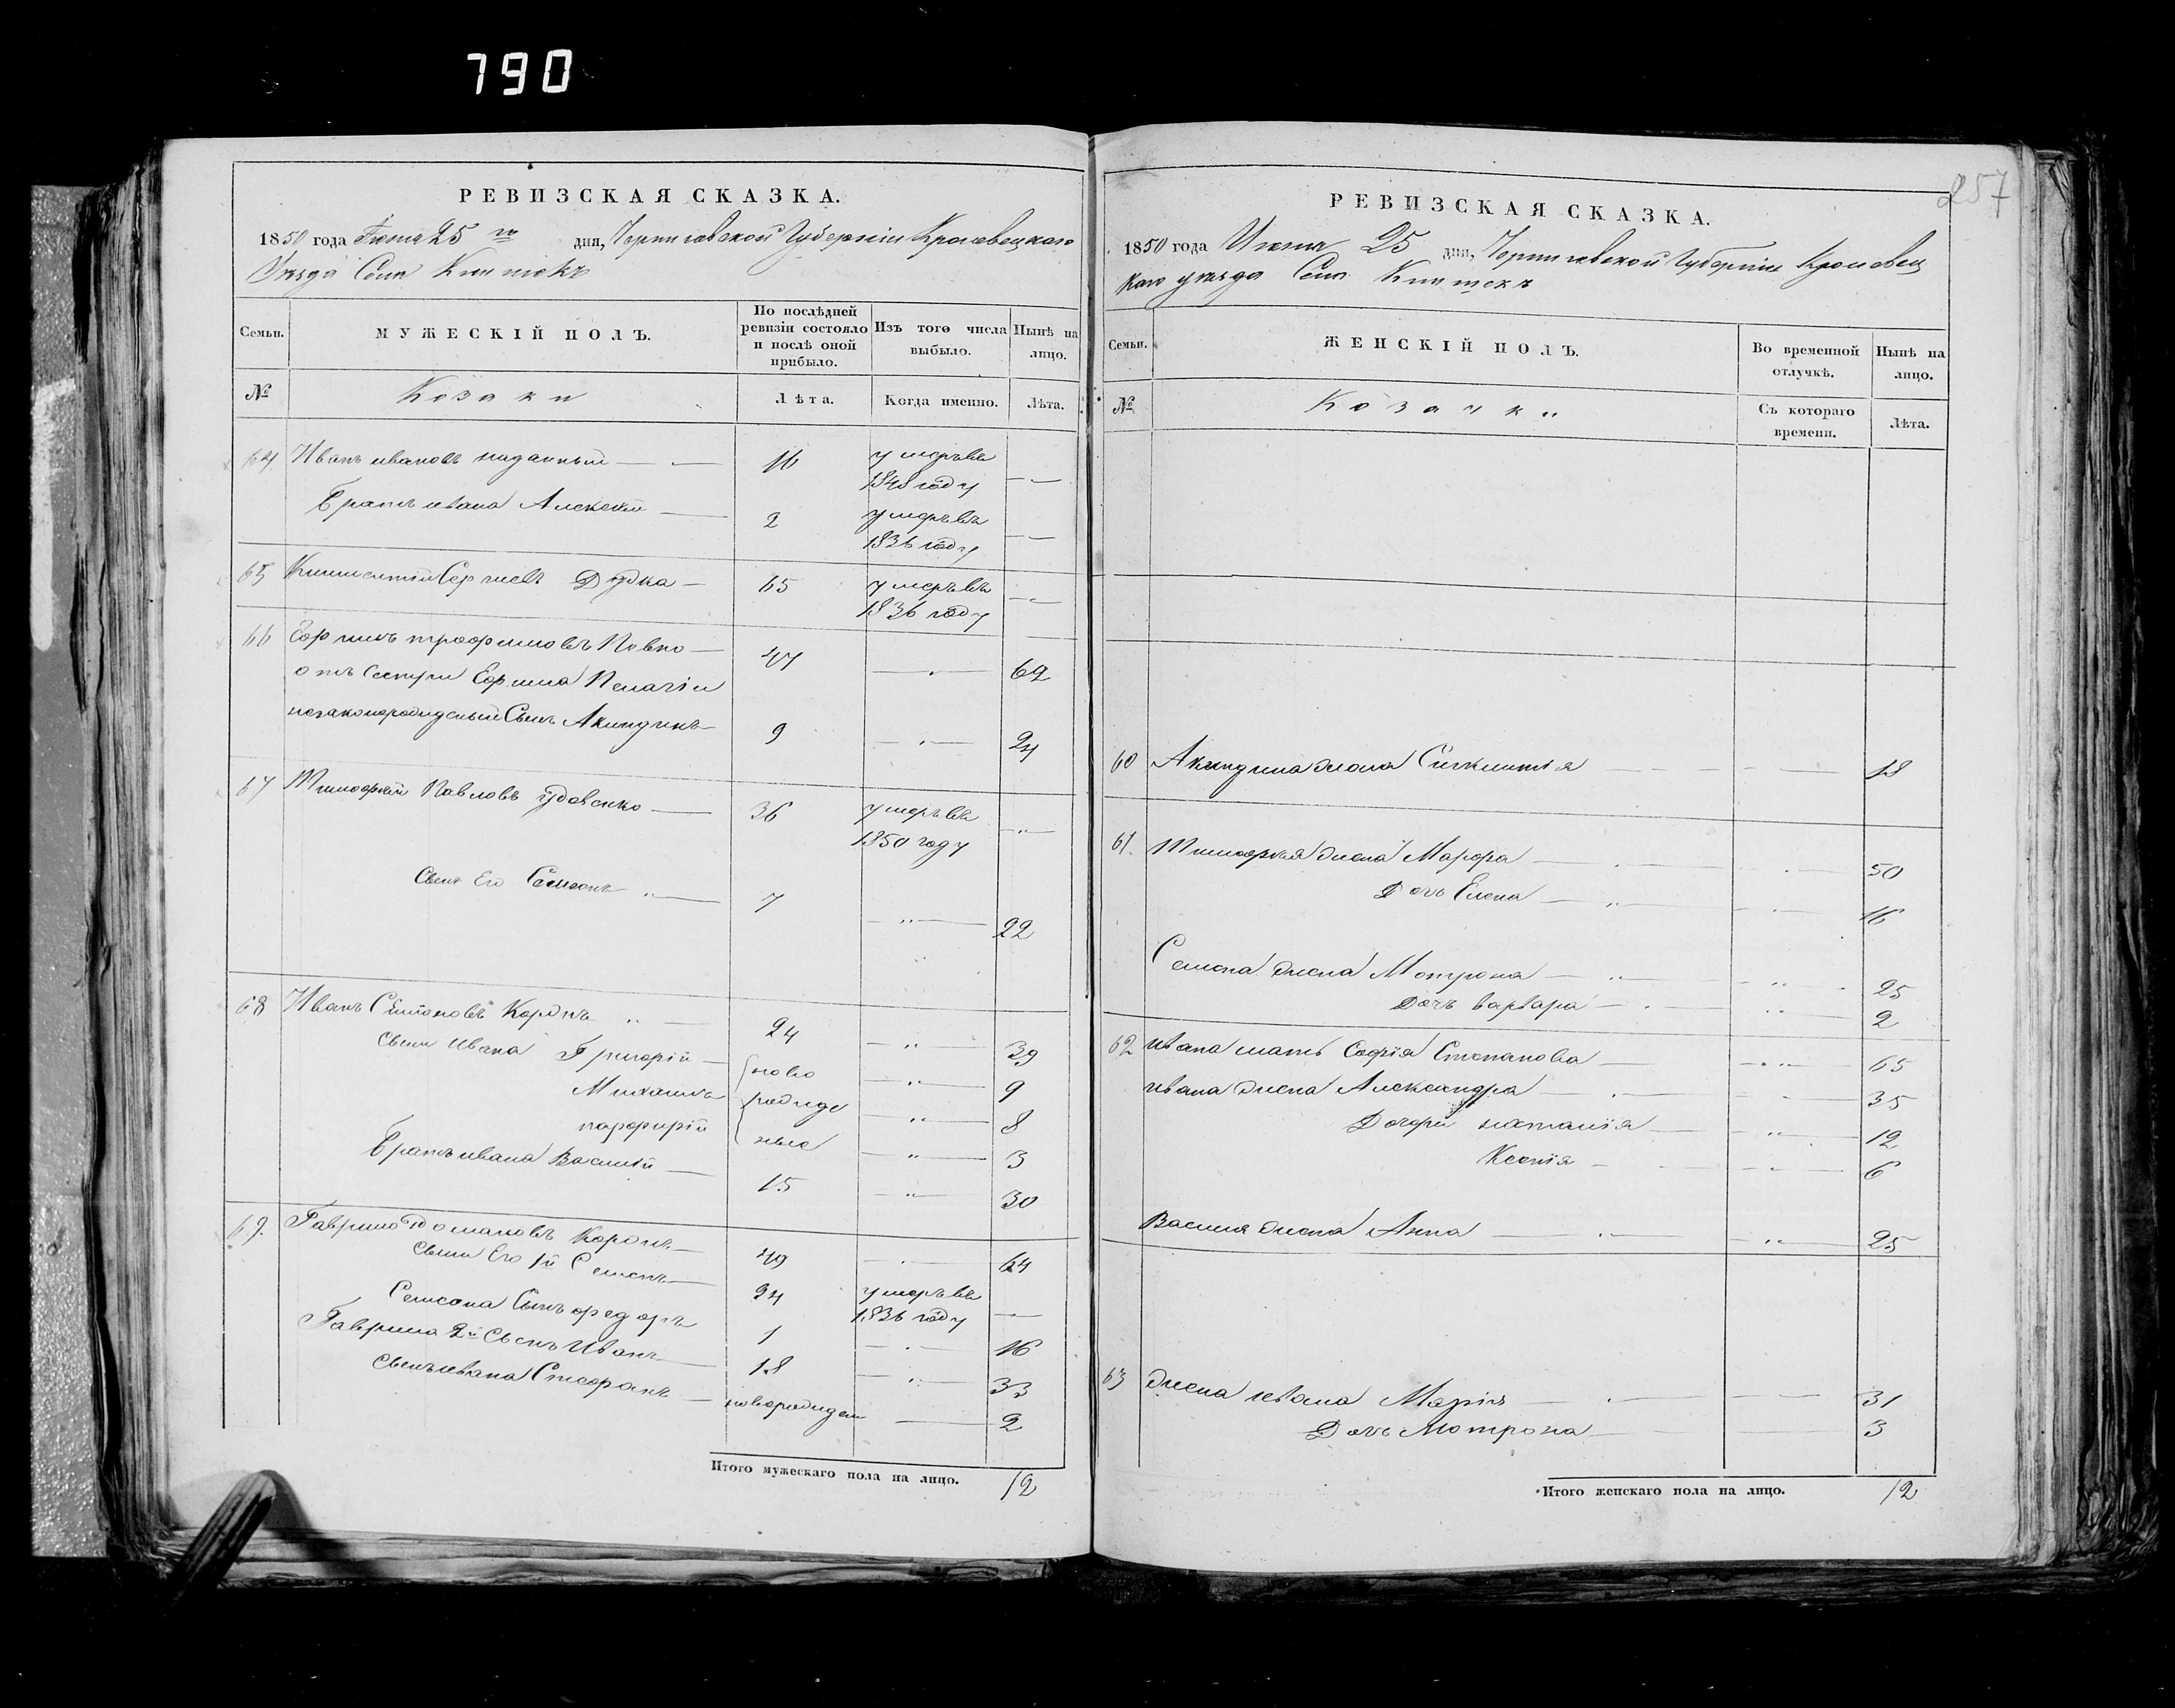 790
257
РЕВИЗСКАЯ СКАЗКА.
1850 года Іюня 25 го дня, Черниговской Губерніи Кролевецкаго
Уезда Села
МУЖЕСКІЙ ПОЛЪ.
Семьи.
По послѣдней
ревизіи состояло
и послѣ оной
прибыло.
Изъ того числа
выбыло.
Нынѣ на
лицо.
№
Козаки
Лѣта.
Когда именно.
Лѣта.
64 Иванъ ивановъ 16 умеръ въ
1848 году
Братъ ивана Алексѣй 2 умеръ въ
1836 году
65 Сергиевъ Дудка 65 умеръ въ
1836 году
66 трофимовъ 47 62
отъ Сестры Пелагіи
незаконорожденый Сынъ Акиндинъ 9 24
67 Тимофѣй Павловъ 36 умеръ въ
1850 году
Сынъ Его Семенъ 7 22
68 Иванъ 24 39
Сыны Ивана Григорій ново 9
Михаилъ рожде 8
парфирій ные 3
Братъ ивана Василій 15 30
69. Гаврило 49 64
Сыны Его 1й Семенъ 34 умеръ въ
1836 году
Семена Сынъ федоръ 1 16
Гаврила 2й Сынъ Иванъ 18 33
Сынъ ивана Стефанъ новорожден 2
Итого мужескаго пола на лицо. 12
РЕВИЗСКАЯ СКАЗКА.
1850 года Июня 25 дня, Черниговской Губерніи Кролевец
каго уезда Села
Семьи.
ЖЕНСКІЙ ПОЛЪ.
Во временной
отлучкѣ.
Нынѣ на
лицо.
№
Козачки
Съ котораго
времени.
Лѣта.
60 Акиндина жена 18
61. Тимофея жена Марфа 50
Дочь Елена 16
Семена жена Мотрона 25
Дочь варвара 2
62 Ивана мать Софія Степанова 65
ивана жена Александра 35
Дочери наталия 12
Ксения 6
Василия жена Анна 25
63 жена ивана Марія 31
Дочь Мотрона 3
Итого женскаго пола на лицо. 12